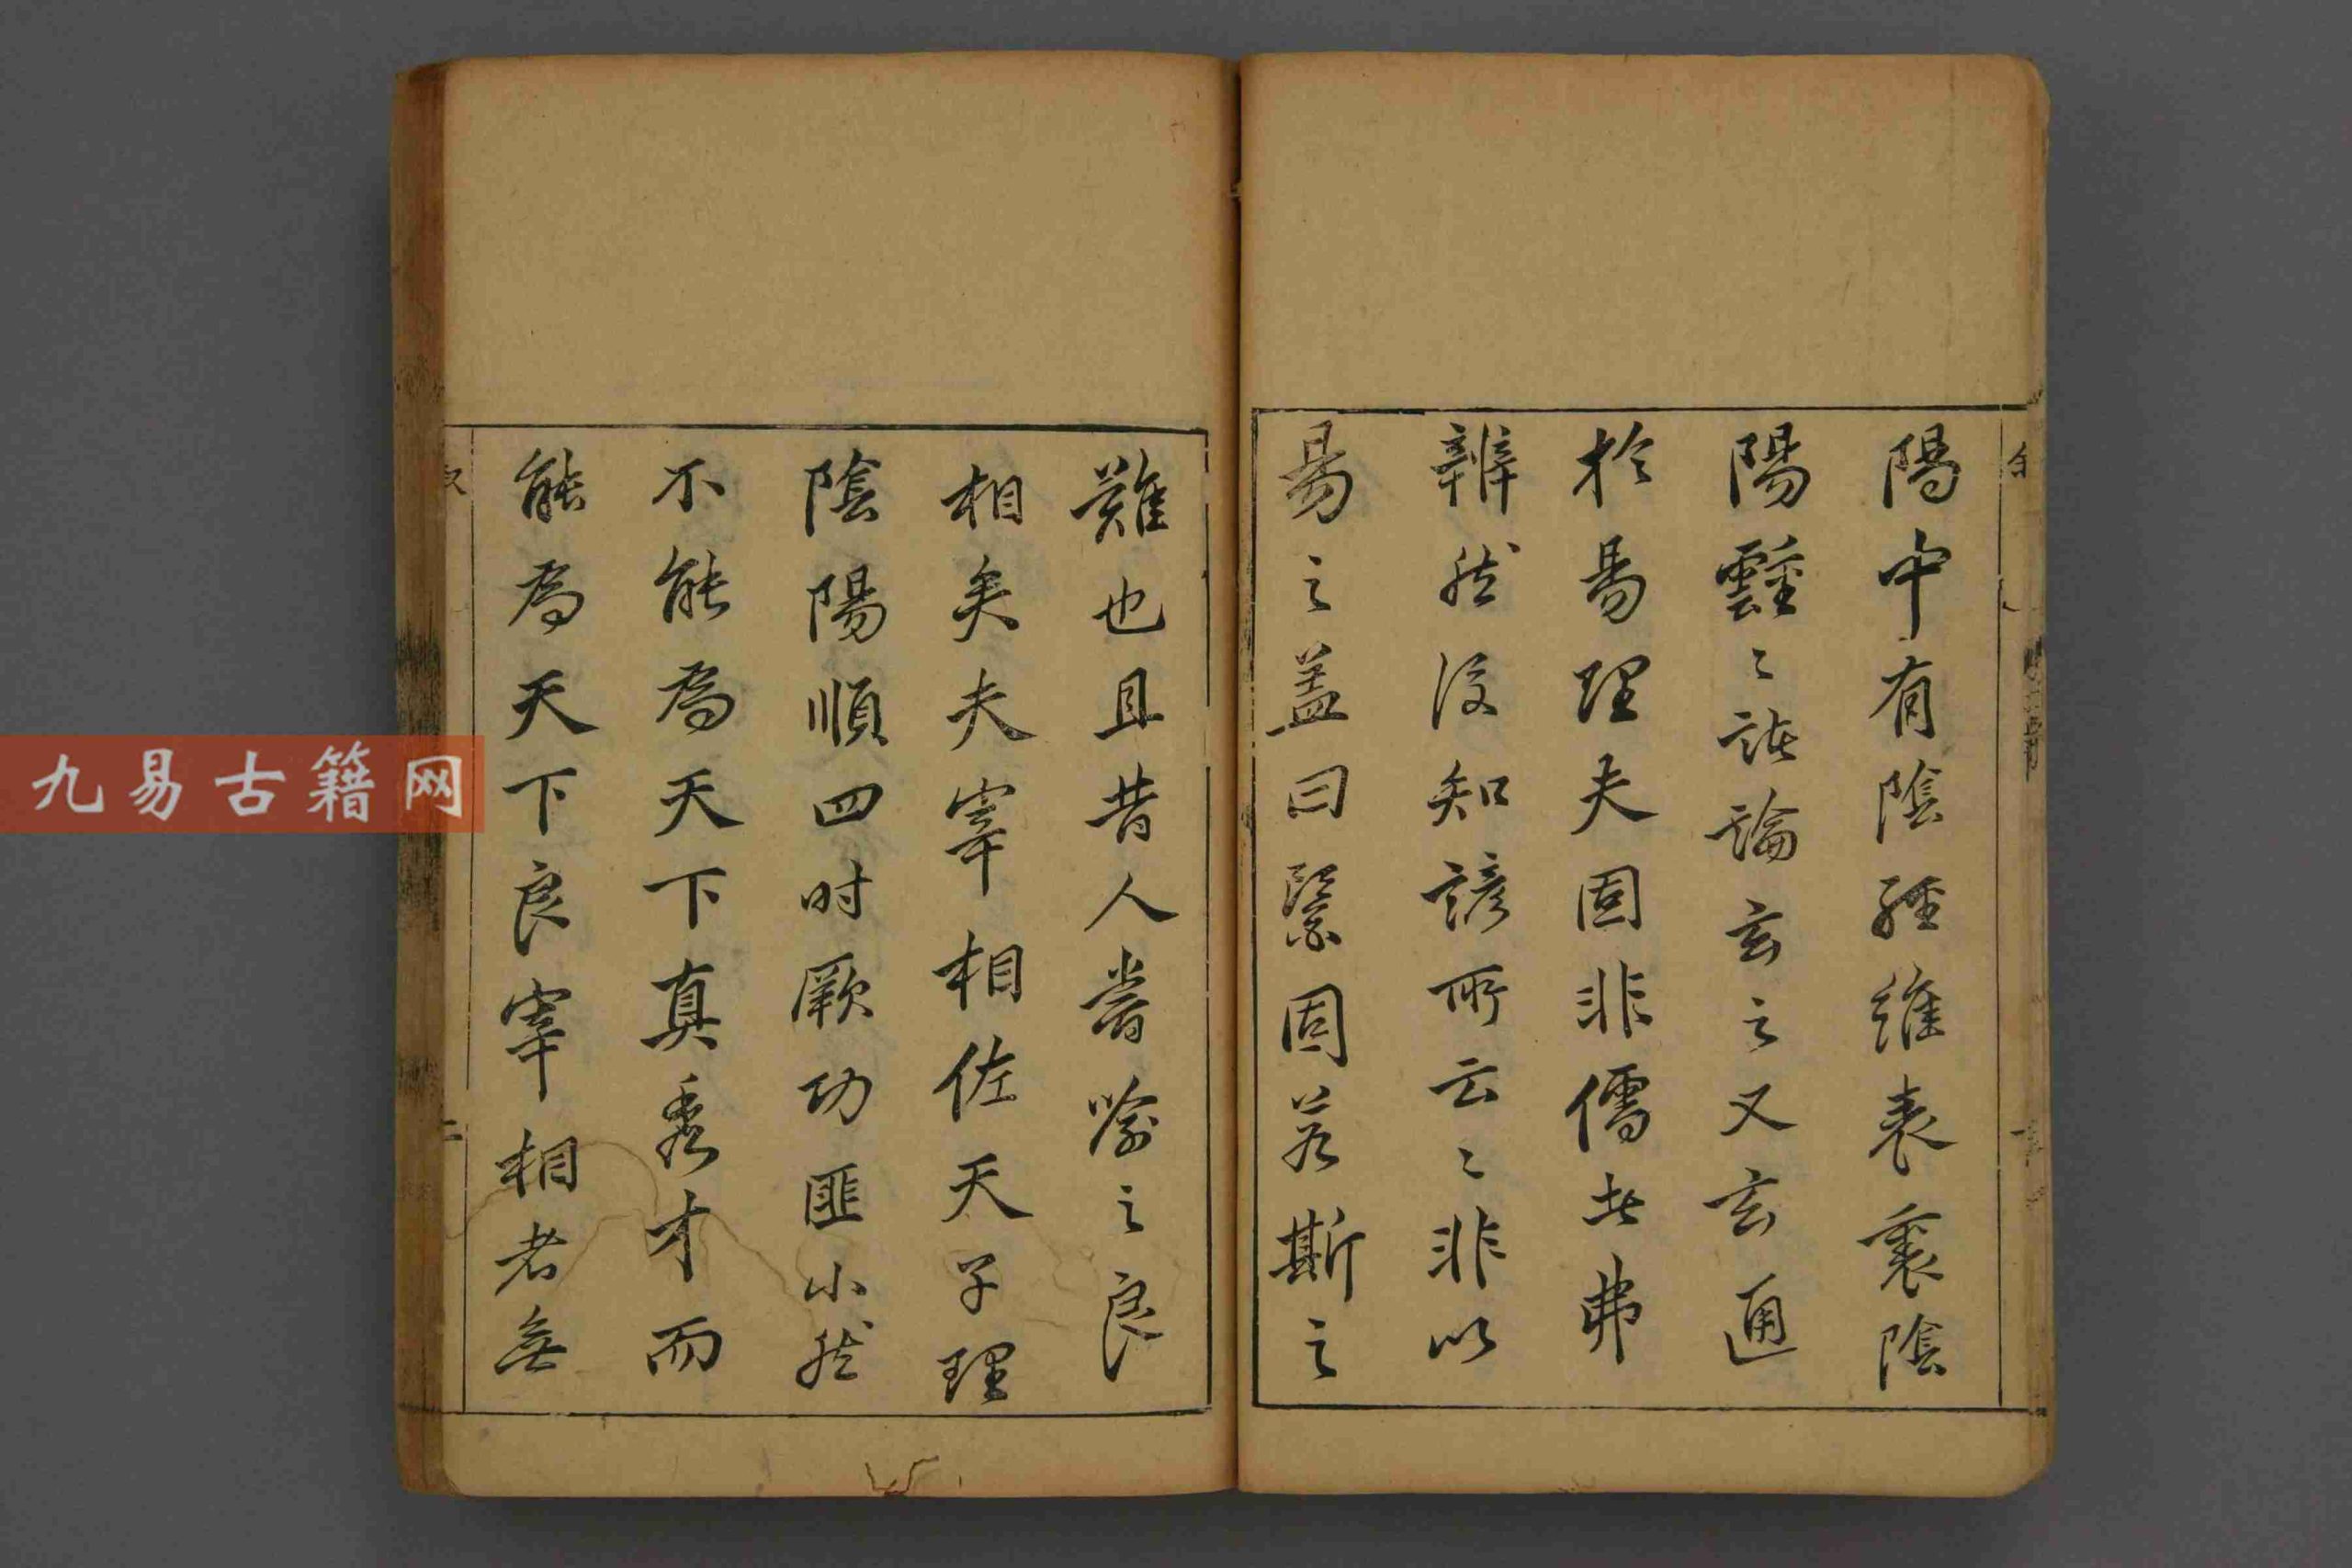 陽中有陰經維表裏陰
陽靉〻談論玄之又玄通
於易理夫固非儒者弗
辨然後知諺所云〻非以
易之蓋曰繄固若斯之
難也且昔人嘗喻之良
相矣夫宰相佐天子理
陰陽順四时厥功匪小然
不能為天下真秀才而
能為天下良宰相者無
二
九易古籍网